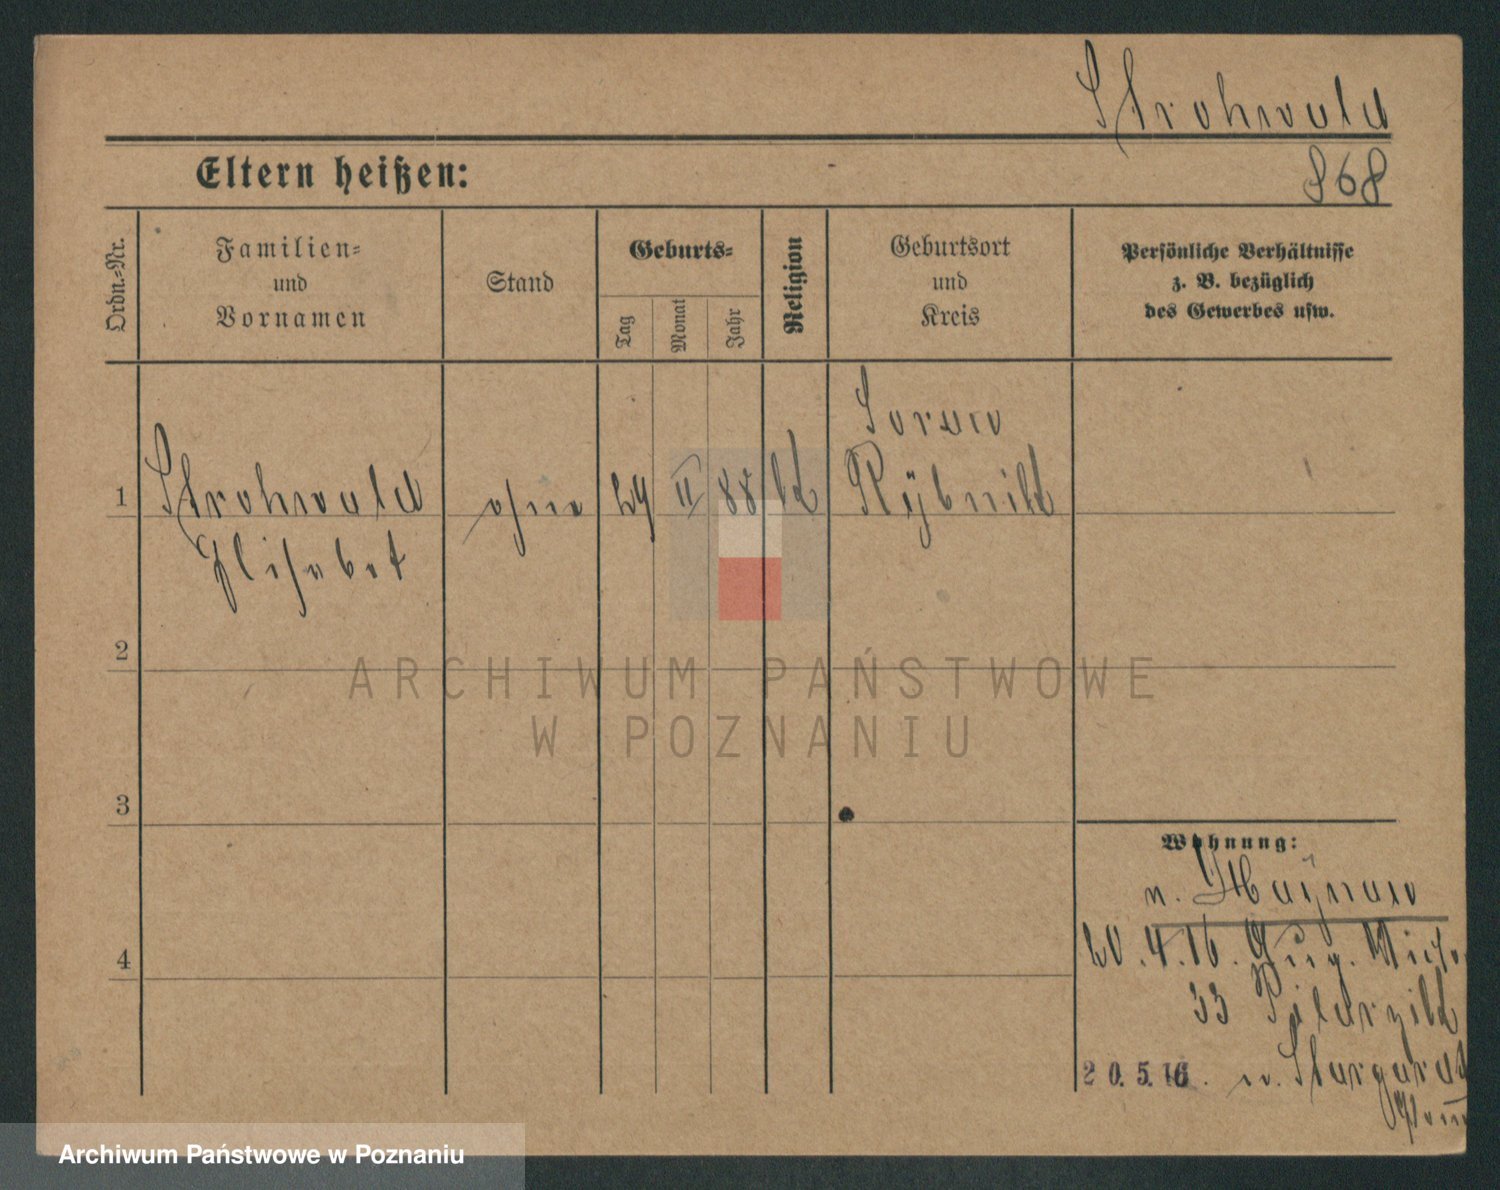 Strohwald
Eltern heißen:
868
Ordn.-Nr.
Familien-
und
Vornamen
Stand
Geburts-
Tag
Monat
Jahr
Religion
Geburtsort
und
Kreis
Persönliche Verhältnisse
z. B. bezüglich
des Gewerbes usw.
Sorau
1 Strohwald ohne 29 II 88 kt Rybnik
Elisabet
2
3
4
Wohnung:
v. Haynau
20.4.16. Aug.
33 Pilarzik
20.5.16. n. Stargard
Pom
ARCHIWUM PAŃSTWOWE
W POZNANIU
Archiwum Państwowe w Poznaniu